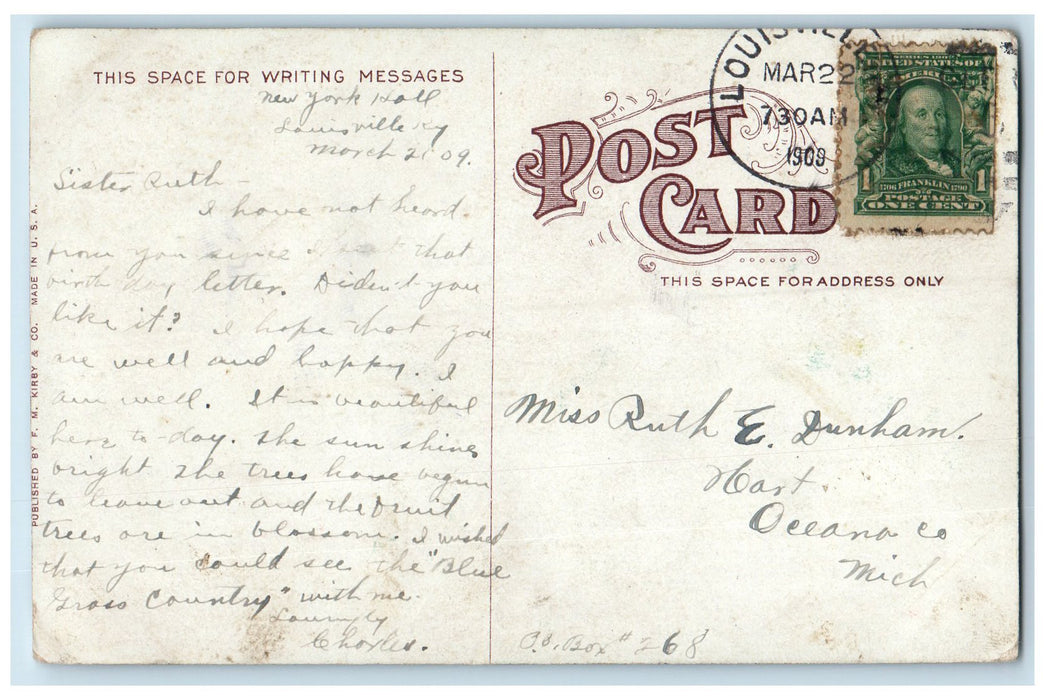 THIS SPACE FOR WRITING MESSAGES
New York Hall
Louisville Ky
March 21 09.
Sister Ruth -
I have not heard
from you since I sent that
birth day letter. Diden't you
like it? I hope that you
are well and happy. I
am well. It is beautiful
here to-day. The sun shines
bright The trees have begun
to leave out and the fruit
trees are in blossom. I wished
that you could see the "Blue
Grass Country" with me.
Lovingly
Charles.
PUBLISHED BY F. M. KIRBY & CO. MADE IN U. S. A.
POST CARD
THIS SPACE FOR ADDRESS ONLY
LOUISVILLE
MAR 22
730AM
1909
SERIES 1902
UNITED STATES OF AMERICA
1 1
1706 FRANKLIN 1790
POSTAGE
ONE CENT
Miss Ruth E. Dunham.
Hart.
Oceana Co
Mich
P.O. Box # 268